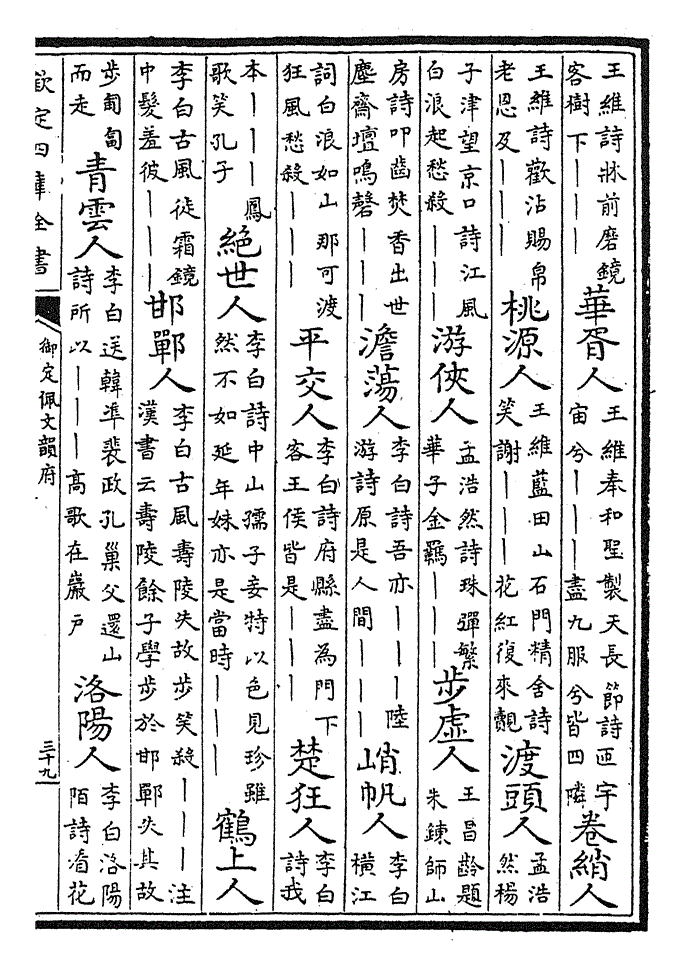 王維詩牀前磨鏡
客樹下｜｜｜
華胥人
王維奉和聖製天長節詩迊宇
宙兮｜｜｜盡九服兮皆四隣
卷綃人
王維詩歡沾賜帛
老恩及｜｜｜
桃源人
王維藍田山石門精舍詩
笑謝｜｜｜花紅復來覿
渡頭人
孟浩
然楊
子津望京口詩江風
白浪起愁殺｜｜｜
游俠人
孟浩然詩珠彈繁
華子金羈｜｜｜
步虛人
王昌齡題
朱鍊師山
房詩叩齒焚香出世
塵齋壇鳴磬｜｜｜
澹蕩人
李白詩吾亦｜｜｜陸
游詩原是人間｜｜｜
峭帆人
李白
橫江
詞白浪如山那可渡
狂風愁殺｜｜｜
平交人
李白詩府縣盡為門下
客王侯皆是｜｜｜
楚狂人
李白
詩我
本｜｜｜鳳
歌笑孔子
絕世人
李白詩中山孺子妾特以色見珍雖
然不如延年妹亦是當時｜｜｜
鶴上人
李白古風徒霜鏡
中髮羞彼｜｜｜
邯鄲人
李白古風壽陵失故步笑殺｜｜｜注
漢書云壽陵餘子學步於邯鄲失其故
步匍匐
而走
青雲人
李白送韓凖裴政孔巢父還山
詩所以｜｜｜高歌在巖戶
洛陽人
李白洛陽
陌詩看花
欽定四庫全書
御定佩文韻府
三十九